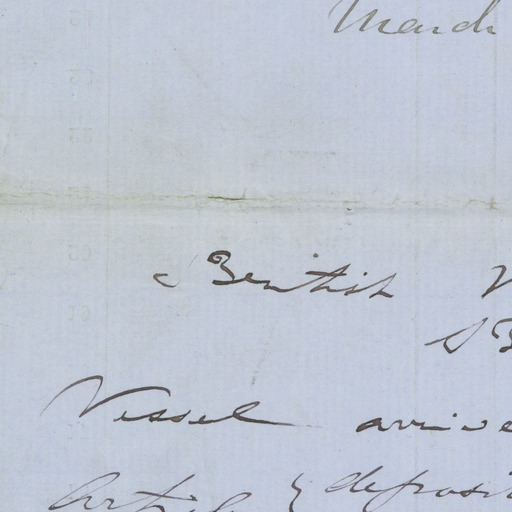 March
British
Vessel arrive
Article & deposi